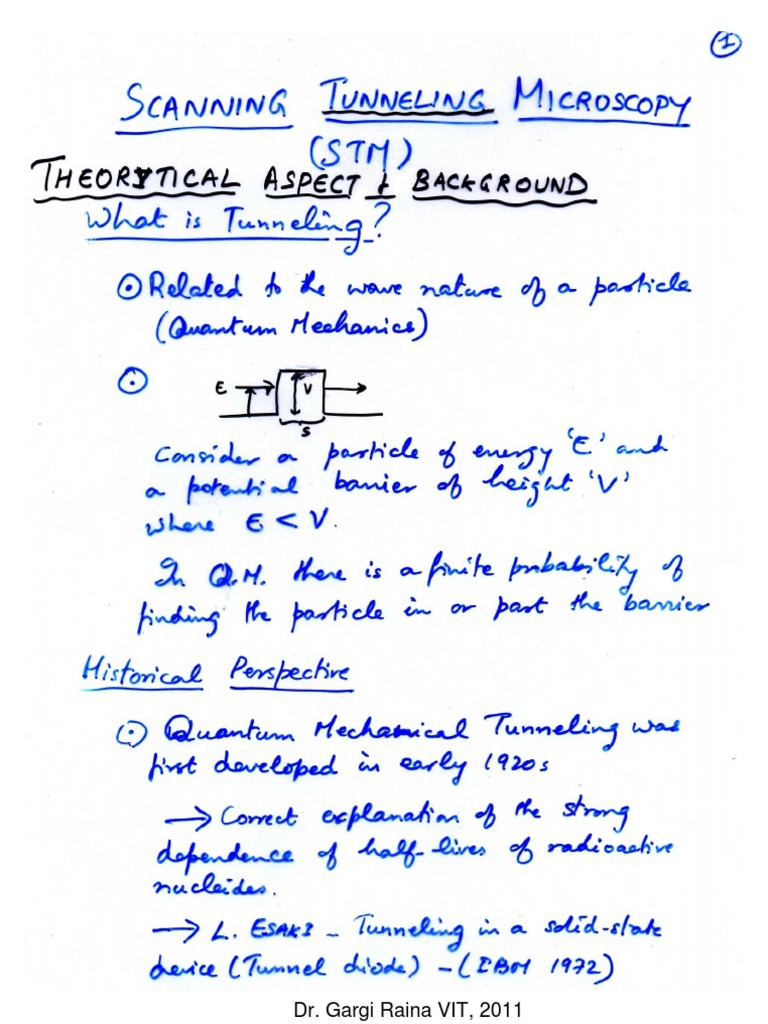 1
SCANNING TUNNELING MICROSCOPY
(STM)
THEORYTICAL ASPECT & BACKGROUND
What is Tunneling?
⊙ Related to the wave nature of a particle
(Quantum Mechanics)
⊙ E V
S
Consider a particle of energy 'E' and
a potential barrier of height 'V'
where E < V.
In Q.M. there is a finite probability of
finding the particle in or past the barrier
Historical Perspective
⊙ Quantum Mechanical Tunneling was
first developed in early 1920s
→ Correct explanation of the strong
dependence of half-lives of radioactive
nucleides.
→ L. ESAKI - Tunneling in a solid-state
device (Tunnel diode) - (IBM 1972)
Dr. Gargi Raina VIT, 2011